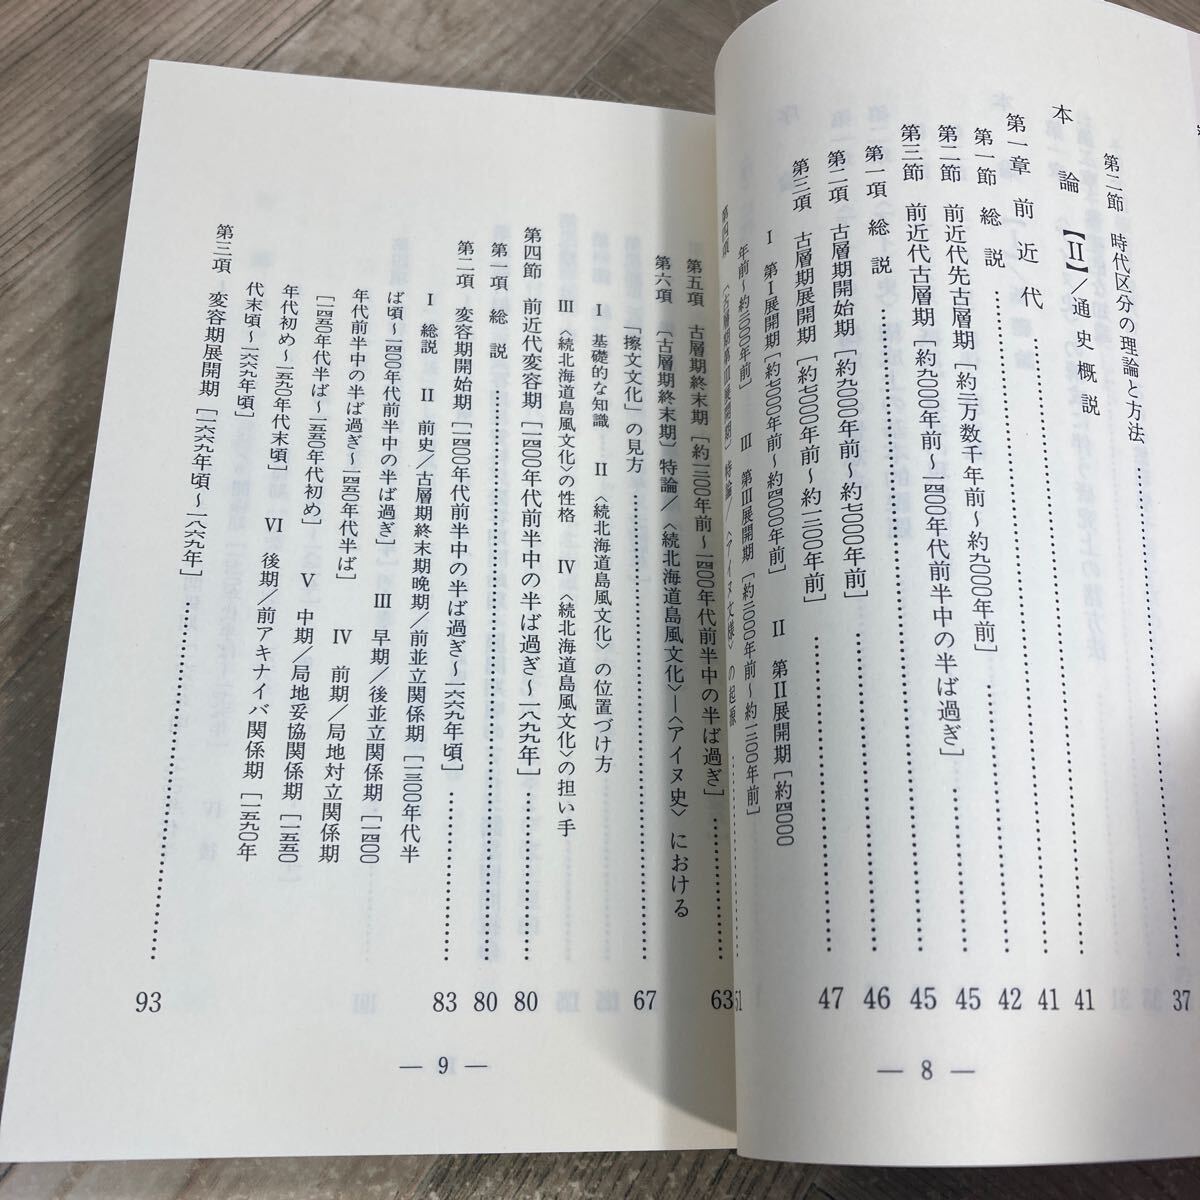 第二節　時代区分の理論と方法……37
本　論　【Ⅱ】／通史概説……41
第一章　前近代……41
第一節　総説……42
第二節　前近代先古層期［約二万数千年前～約九〇〇〇年前］……45
第三節　前近代古層期［約九〇〇〇年前～一四〇〇年代前半中の半ば過ぎ］……45
第一項　総説……46
第二項　古層期開始期［約九〇〇〇年前～約七〇〇〇年前］
第三項　古層期展開期［約七〇〇〇年前～約一三〇〇年前］……47
Ⅰ　第Ⅰ展開期［約七〇〇〇年前～約四〇〇〇年前］　Ⅱ　第Ⅱ展開期［約四〇〇〇
年前～約二〇〇〇年前］　Ⅲ　第Ⅲ展開期［約二〇〇〇年前～約一三〇〇年前］
第四項　〈古層期第Ⅲ展開期〉特論／〈アイヌ文様〉の起源……51
— 8 —
第五項　古層期終末期［約一三〇〇年前～一四〇〇年代前半中の半ば過ぎ］……63
第六項　［古層期終末期］特論／〈続北海道島風文化〉―〈アイヌ史〉における
「擦文文化」の見方……67
Ⅰ　基礎的な知識　Ⅱ　〈続北海道島風文化〉の位置づけ方
Ⅲ　〈続北海道島風文化〉の性格　Ⅳ　〈続北海道島風文化〉の担い手
第四節　前近代変容期［一四〇〇年代前半中の半ば過ぎ～一八九九年］……80
第一項　総説……80
第二項　変容期開始期［一四〇〇年代前半中の半ば過ぎ～一六六九年頃］……83
Ⅰ　総説　Ⅱ　前史／古層期終末期晩期／前並立関係期［一三〇〇年代半
ば頃～一四〇〇年代前半中の半ば過ぎ］　Ⅲ　早期／後並立関係期［一四〇〇
年代前半中の半ば過ぎ～一四五〇年代半ば］　Ⅳ　前期／局地対立関係期
［一四五〇年代半ば～一五五〇年代初め］　Ⅴ　中期／局地妥協関係期［一五五〇
年代初め～一五九〇年代末頃］　Ⅵ　後期／前アキナイバ関係期［一五九〇年
代末頃～一六六九年頃］
第三項　変容期展開期［一六六九年頃～一八六九年］……93
— 9 —